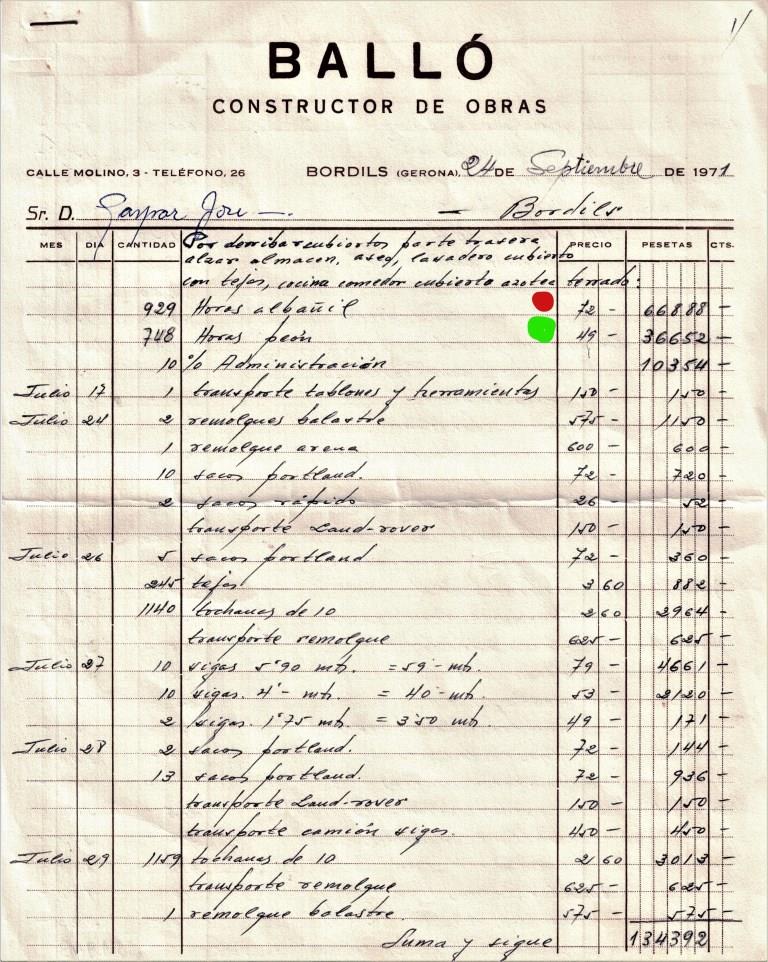 BALLÓ
CONSTRUCTOR DE OBRAS
CALLE MOLINO, 3 - TELÉFONO, 26 BORDILS (GERONA), 24 DE Septiembre DE 1971
Sr. D. Gaspar Jou —. — Bordils
MES DIA CANTIDAD PRECIO PESETAS CTS.
Por derribar cubiertos parte trasera,
alzar almacen, aseo, lavadero cubierto
con tejas, cocina comedor cubierto azotea terrado:
929 Horas albañil 72 - 66888 -
748 Horas peón 49 - 36652 -
10 % Administración 10354 -
Julio 17 1 transporte tablones y herramientas 150 - 150 -
Julio 24 2 remolques balastre 575 - 1150 -
1 remolque arena 600 - 600 -
10 sacos portland. 72 - 720 -
2 sacos rápido 26 - 52 -
transporte Land-rover 150 - 150 -
Julio 26 5 sacos portland 72 - 360 -
245 tejas 3 60 882 -
1140 tochanas de 10 2 60 2964 -
transporte remolque 625 - 625 -
Julio 27 10 vigas 5'90 mts. = 59'- mts. 79 - 4661 -
10 vigas. 4'- mts. = 40'- mts. 53 - 2120 -
2 vigas. 1'75 mts. = 3'50 mts. 49 - 171 -
Julio 28 2 sacos portland. 72 - 144 -
13 sacos portland. 72 - 936 -
transporte Land-rover 150 - 150 -
transporte camión vigas. 450 - 450 -
Julio 29 1159 tochanas de 10 2 60 3013 -
transporte remolque 625 - 625 -
1 remolque balastre. 575 - 575 -
Suma y sigue 134392 -